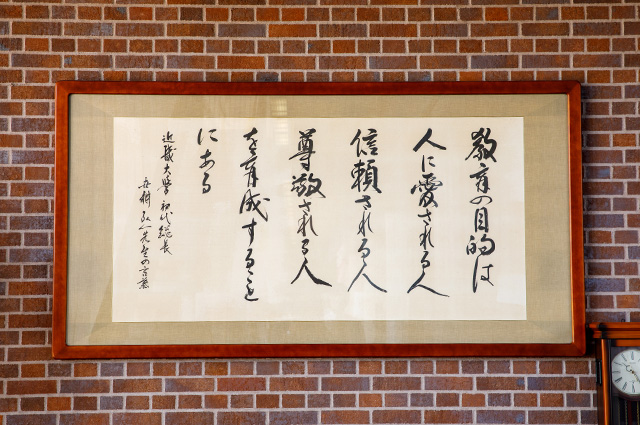 教育の目的は
人に愛される人
信頼される人
尊敬される人
を育成すること
にある
近畿大学初代総長
世耕弘一先生の言葉